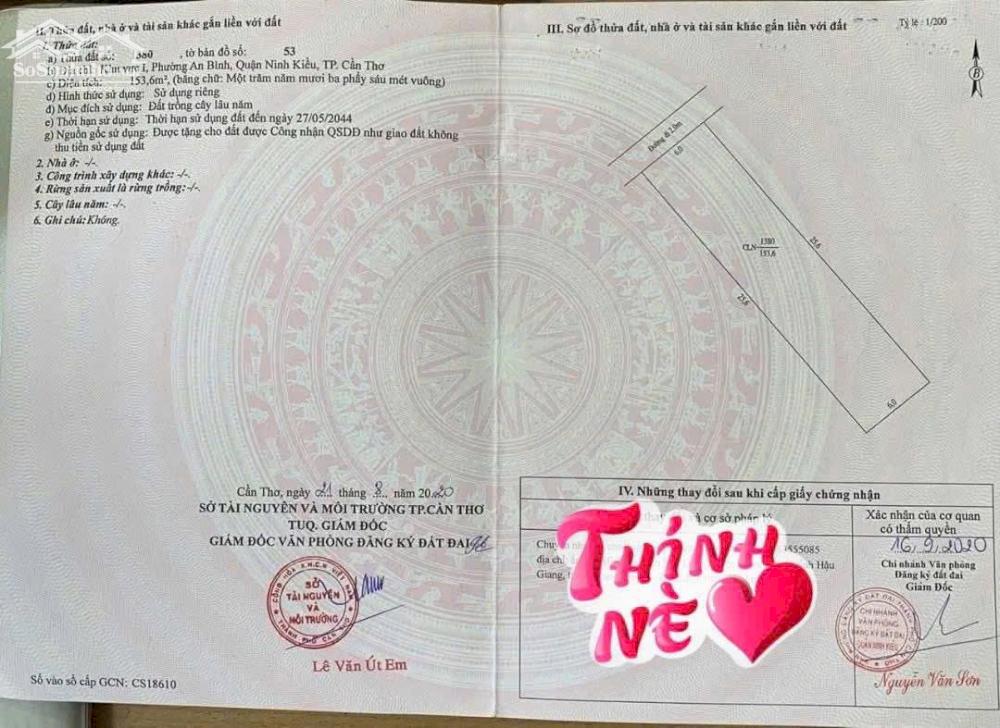 II. Thửa đất, nhà ở và tài sản khác gắn liền với đất
1. Thửa đất:
a) Thửa đất số: 1380 , tờ bản đồ số: 53
Khu vực I, Phường An Bình, Quận Ninh Kiều, TP. Cần Thơ
c) Diện tích: 153,6m², (bằng chữ: Một trăm năm mươi ba phẩy sáu mét vuông)
d) Hình thức sử dụng: Sử dụng riêng
đ) Mục đích sử dụng: Đất trồng cây lâu năm
e) Thời hạn sử dụng: Thời hạn sử dụng đất đến ngày 27/05/2044
g) Nguồn gốc sử dụng: Được tặng cho đất được Công nhận QSDĐ như giao đất không
thu tiền sử dụng đất
2. Nhà ở: -/-
3. Công trình xây dựng khác: -/-
4. Rừng sản xuất là rừng trồng: -/-
5. Cây lâu năm: -/-
6. Ghi chú: Không.
Cần Thơ, ngày 21 tháng 8 năm 2020
SỞ TÀI NGUYÊN VÀ MÔI TRƯỜNG TP.CẦN THƠ
TUQ. GIÁM ĐỐC
GIÁM ĐỐC VĂN PHÒNG ĐĂNG KÝ ĐẤT ĐAI
SỞ
TÀI NGUYÊN
VÀ
MÔI TRƯỜNG
Lê Văn Út Em
Số vào sổ cấp GCN: CS18610
III. Sơ đồ thửa đất, nhà ở và tài sản khác gắn liền với đất
Tỷ lệ : 1/200
B
Đường đi 2.0m
6,0
25,6
CLN 1380
153,6
25,6
6,0
IV. Những thay đổi sau khi cấp giấy chứng nhận
và cơ sở pháp lý
Xác nhận của cơ quan
có thẩm quyền
địa chỉ
1555085
Hậu
Giang,
16/9/2020
Chi nhánh Văn phòng
Đăng ký đất đai
Giám Đốc
CHI NHÁNH
VĂN PHÒNG
ĐĂNG KÝ ĐẤT ĐAI
QUẬN NINH KIỀU
Nguyễn Văn Sơn
THÍNH
NÈ